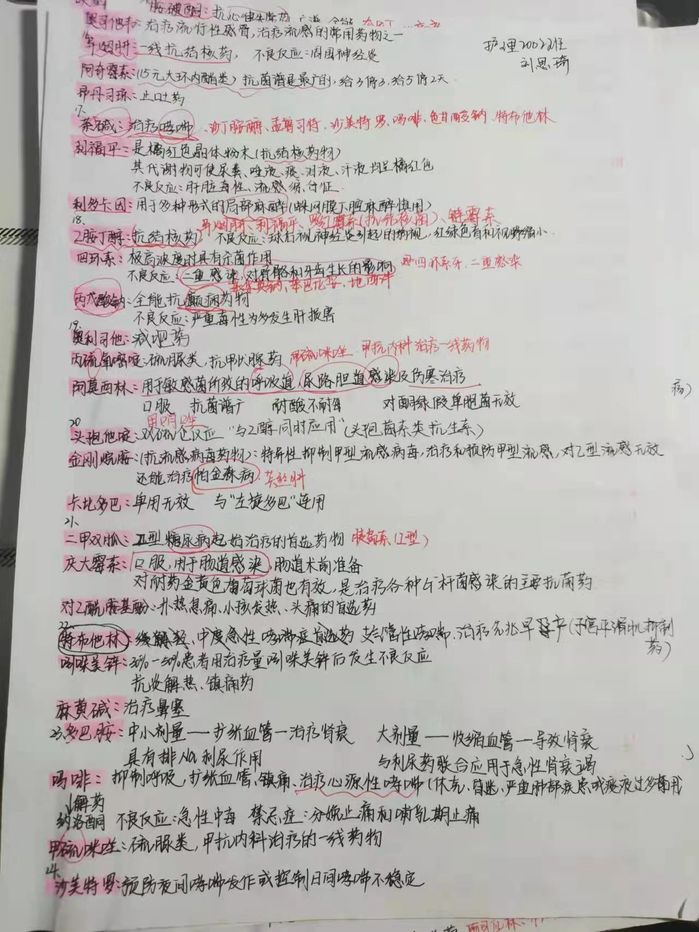 胺碘酮：抗心律失常药
奥司他韦：治疗流行性感冒，治疗流感的常用药物之一
异烟肼：一线抗结核药，不良反应：周围神经炎
护理2002班
刘思琦
阿奇霉素：(15元大环内酯类) 抗菌谱是最广的，给3停3，给5停2天
昂丹司琼：止吐药
17.
茶碱：治疗哮喘 沙丁胺醇、孟鲁司特、沙美特罗、吗啡、色甘酸钠、特布他林
利福平：是橘红色晶体粉末(抗结核药物)
其代谢物可使尿素、唾液、痰、泪液、汗液均呈橘红色
不良反应：肝脏毒性、流感综合征
利多卡因：用于多种形式的局部麻醉
18.
异烟肼、利福平、链霉素
乙胺丁醇：抗结核药 不良反应：球后视神经炎引起的弱视，红绿色盲和视野缩小
四环素：极高浓度时具有杀菌作用
不良反应：二重感染，对骨骼和牙齿生长的影响 四环素牙、二重感染
丙戊酸钠：全能抗癫痫药物
不良反应：严重毒性为多发生肝损害
19.
奥利司他：减肥药
丙硫氧嘧啶：硫脲类，抗甲状腺药 甲硫咪唑 甲抗内科治疗一线药物
阿莫西林：用于敏感菌所致的呼吸道，尿路胆道感染及伤寒治疗
口服 抗菌谱广 耐酸不耐酶 对铜绿假单胞菌无效
20
头孢他啶：双硫仑反应 "与乙醇同时应用"(头孢菌素类抗生素)
金刚烷胺：(抗流感病毒药物)：特异性抑制甲型流感病毒，治疗和预防甲型流感，对乙型流感无效
还能治疗帕金森病
卡比多巴：单用无效 与"左旋多巴"连用
21.
二甲双胍：II型糖尿病起始治疗的首选药物 胰岛素(I型)
庆大霉素：口服，用于肠道感染，肠道术前准备
对耐药金黄色葡萄球菌也有效，是治疗各种G-杆菌感染的主要抗菌药
对乙酰氨基酚：小孩发热、头痛的首选药
22
特布他林：中度急性哮喘症首选药 支气管性哮喘、治疗先兆早产(子宫平滑肌抑制药)
吲哚美锌：30%-50%患者用治疗量吲哚美锌后发生不良反应
抗炎解热、镇痛药
麻黄碱：治疗鼻塞
23.多巴胺：中小剂量——扩张血管—治疗肾衰 大剂量——收缩血管—导致肾衰
具有排Na利尿作用 与利尿药联合应用于急性肾衰竭
吗啡：抑制呼吸，扩张血管，镇痛，治疗心源性哮喘(休克、昏迷，严重肺部疾患或痰液过多禁用)
解药
纳洛酮 不良反应：急性中毒 禁忌症：分娩止痛和哺乳期止痛
甲硫咪唑：硫脲类，甲抗内科治疗的一线药物
24.
沙美特罗：预防夜间哮喘发作或控制日间哮喘不稳定